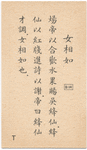 女相如
煬帝以合歡水果賜吳絳仙絳
仙以紅牋進詩以謝帝曰絳仙
才調女相如也
丁